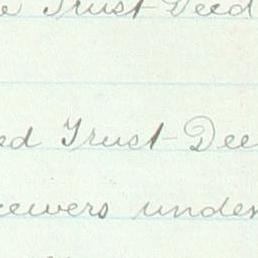 Trust Deed
ed Trust-Dee
ceivers under